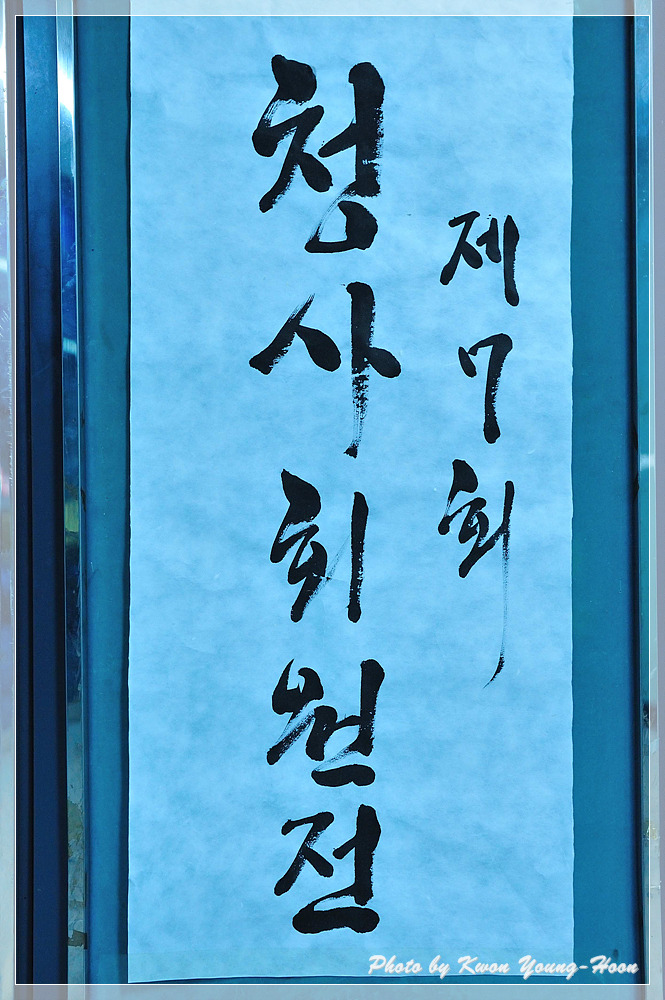 제7회
청사회원전
Photo by Kwon Young-Hoon